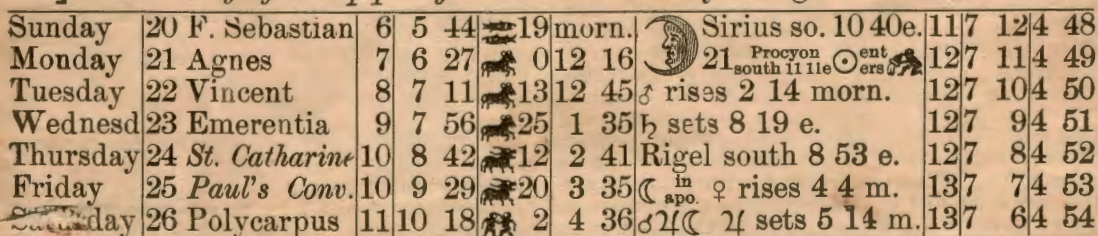 Sunday 20 F. Sebastian 6 5 44 19 morn. Sirius so. 10 40e. 11 7 12 4 48
Monday 21 Agnes 7 6 27 0 12 16 21 Procyon south 11 11e ☉ enters 12 7 11 4 49
Tuesday 22 Vincent 8 7 11 13 12 45 ♂ rises 2 14 morn. 12 7 10 4 50
Wednesd 23 Emerentia 9 7 56 25 1 35 ♄ sets 8 19 e. 12 7 9 4 51
Thursday 24 St. Catharine 10 8 42 12 2 41 Rigel south 8 53 e. 12 7 8 4 52
Friday 25 Paul's Conv. 10 9 29 20 3 35 ☾ in apo. ♀ rises 4 4 m. 13 7 7 4 53
day 26 Polycarpus 11 10 18 2 4 36 ☌♃☾ ♃ sets 5 14 m. 13 7 6 4 54